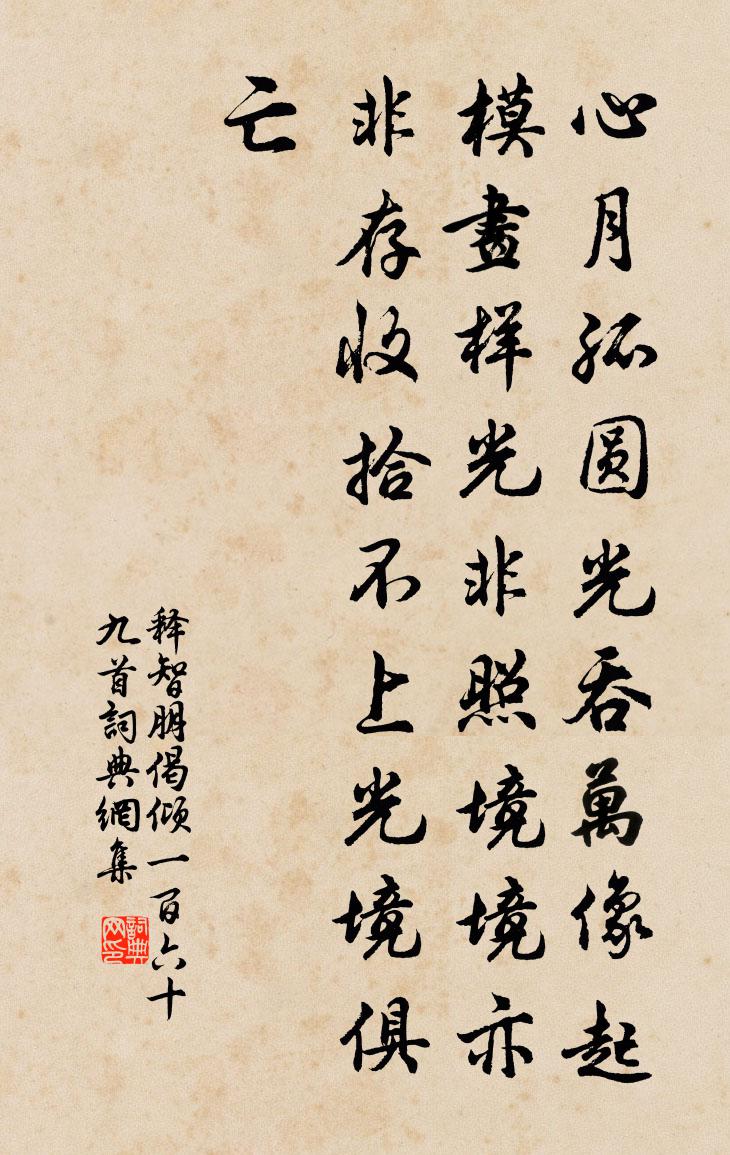 心月孤圓光吞萬像起
模畫样光非照境境亦
非存收拾不上光境俱
亡
释智朋偈倾一百六十
九首詞典網集
詞典网印